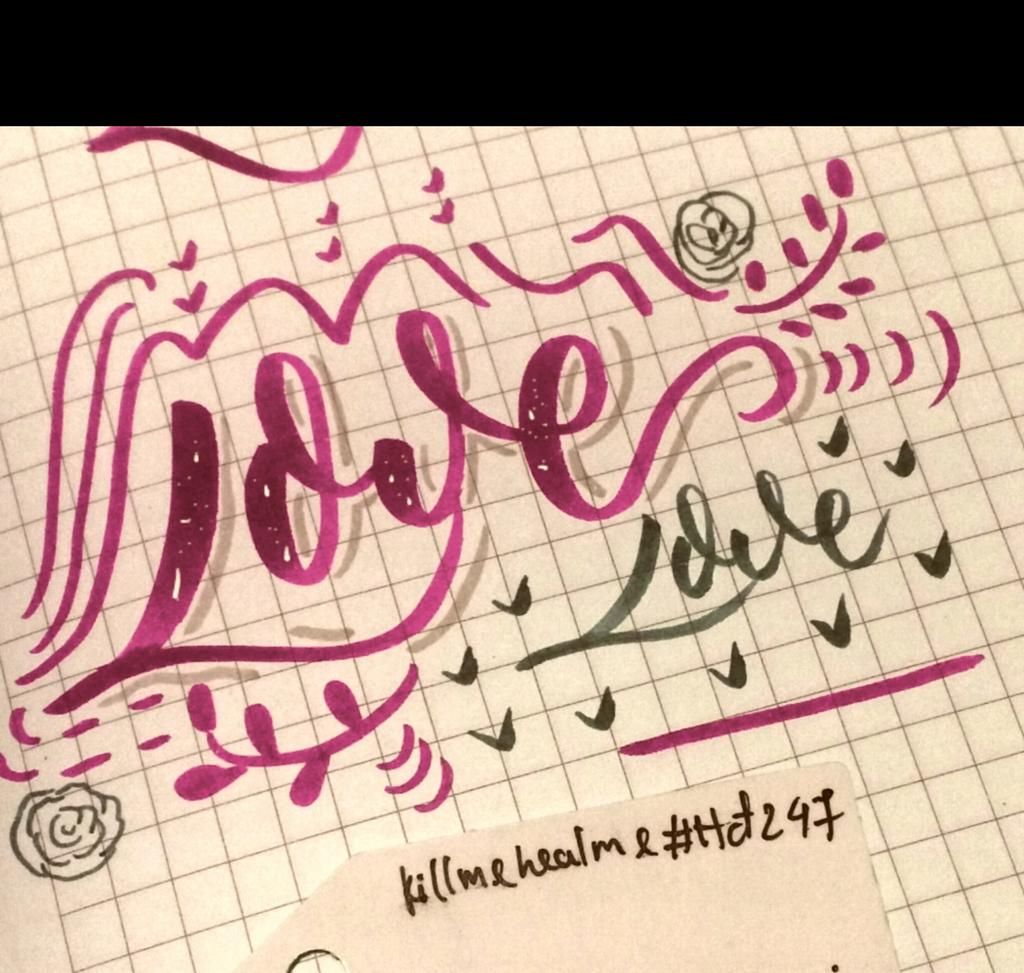 Love
Love
killmehealme#Hd247